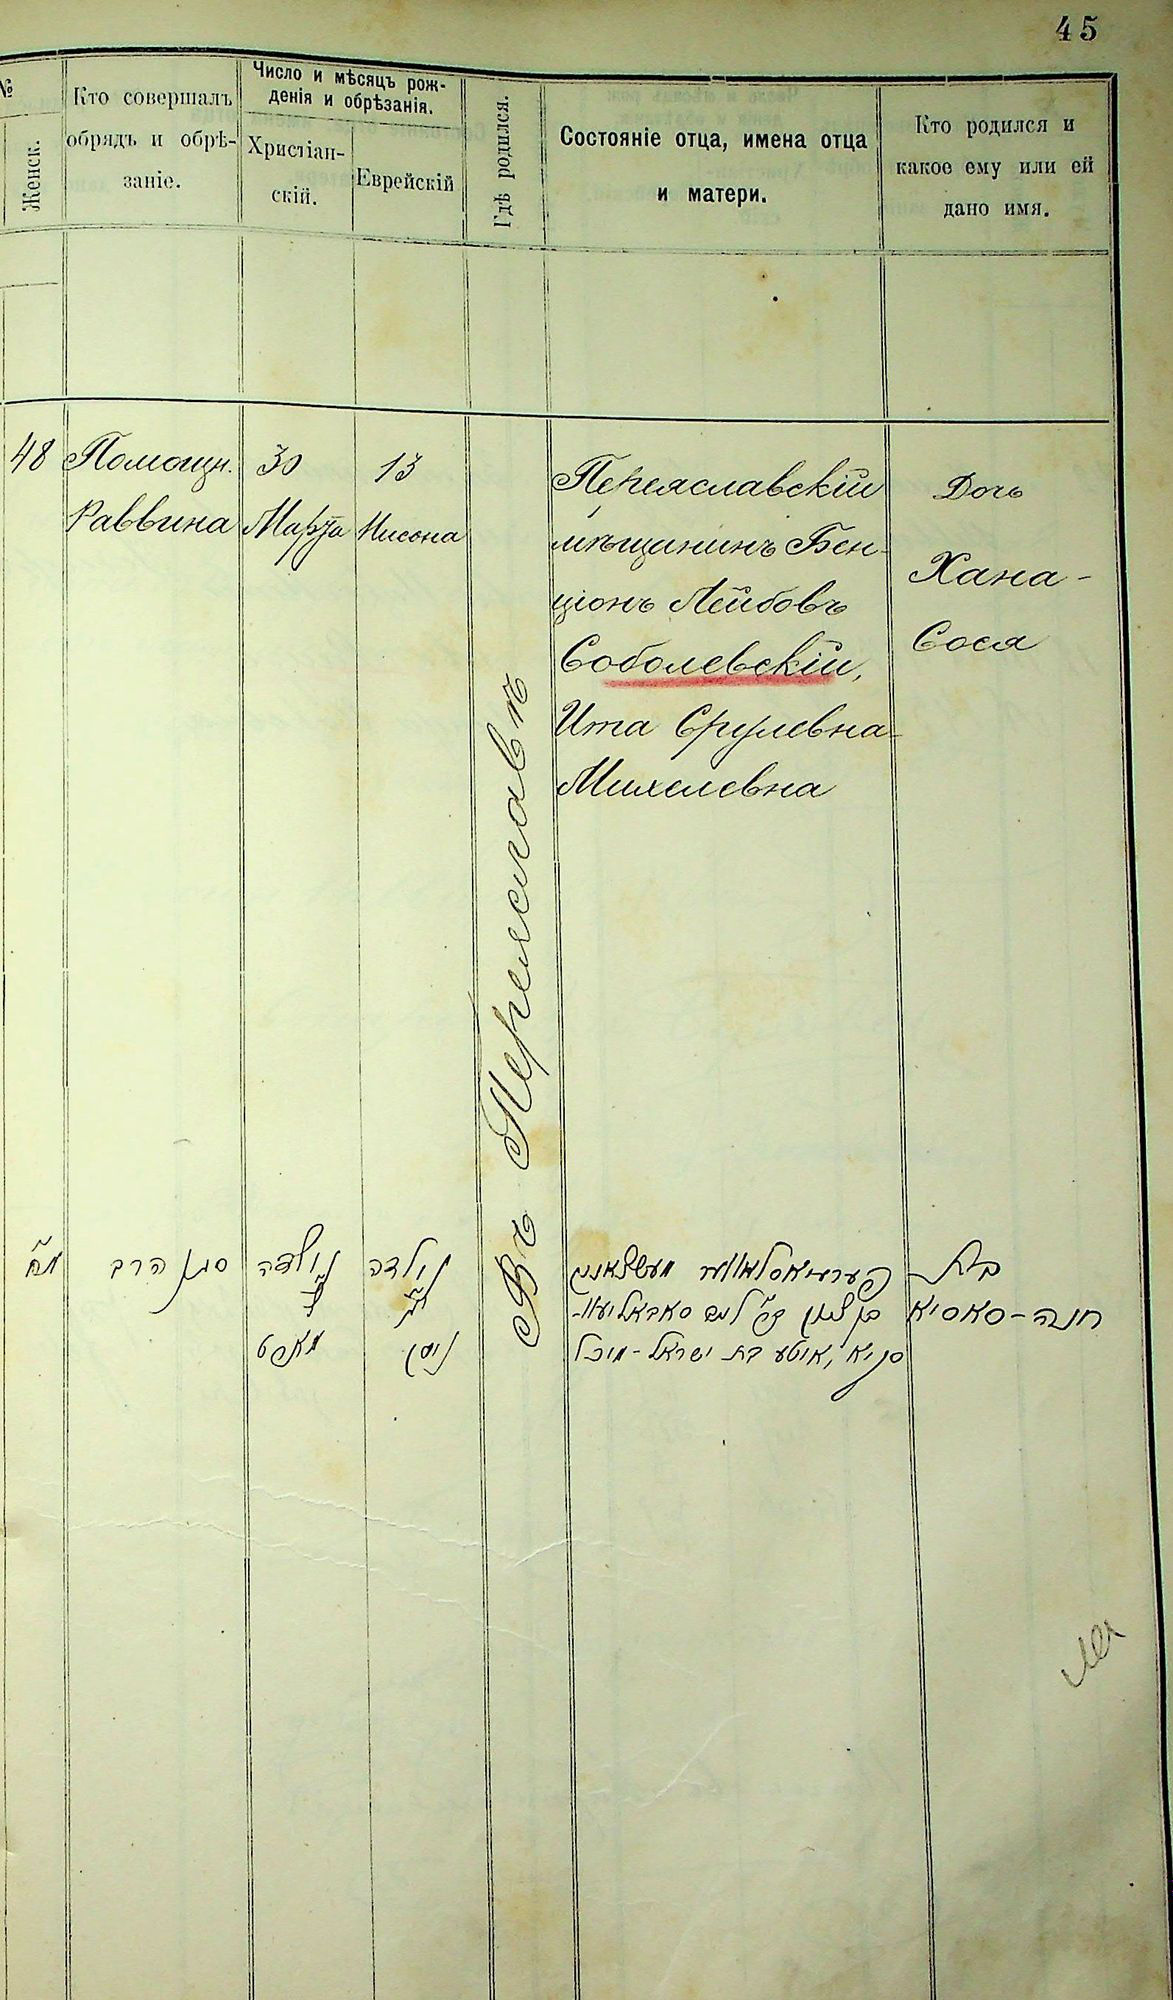 45
№
Женск.
Кто совершалъ
обрядъ и обрѣ-
заніе.
Число и мѣсяцъ рож-
денія и обрѣзанія.
Христіан-
скій.
Еврейскій
Гдѣ родился.
Состояніе отца, имена отца
и матери.
Кто родился и
какое ему или ей
дано имя.
48
Помощн.
Раввина
30
Марта
13
Нисона
Въ Переяславѣ
Переяславскій
мѣщанинъ Бен-
ціонъ Лейбовъ
Соболевскій,
Ита Срулевна-
Михелевна
Дочь
Хана-
Сося
מח
סגן הרב
נולדה
ל
מארט
נולדה
יג
ניסן
פערעיאסלאווער מעשצאנין
בן ציון ב״ר ליב סאבאליעוו-
סקיא, איטע בת ישראל-מיכל
בת
חנה-סאסיא